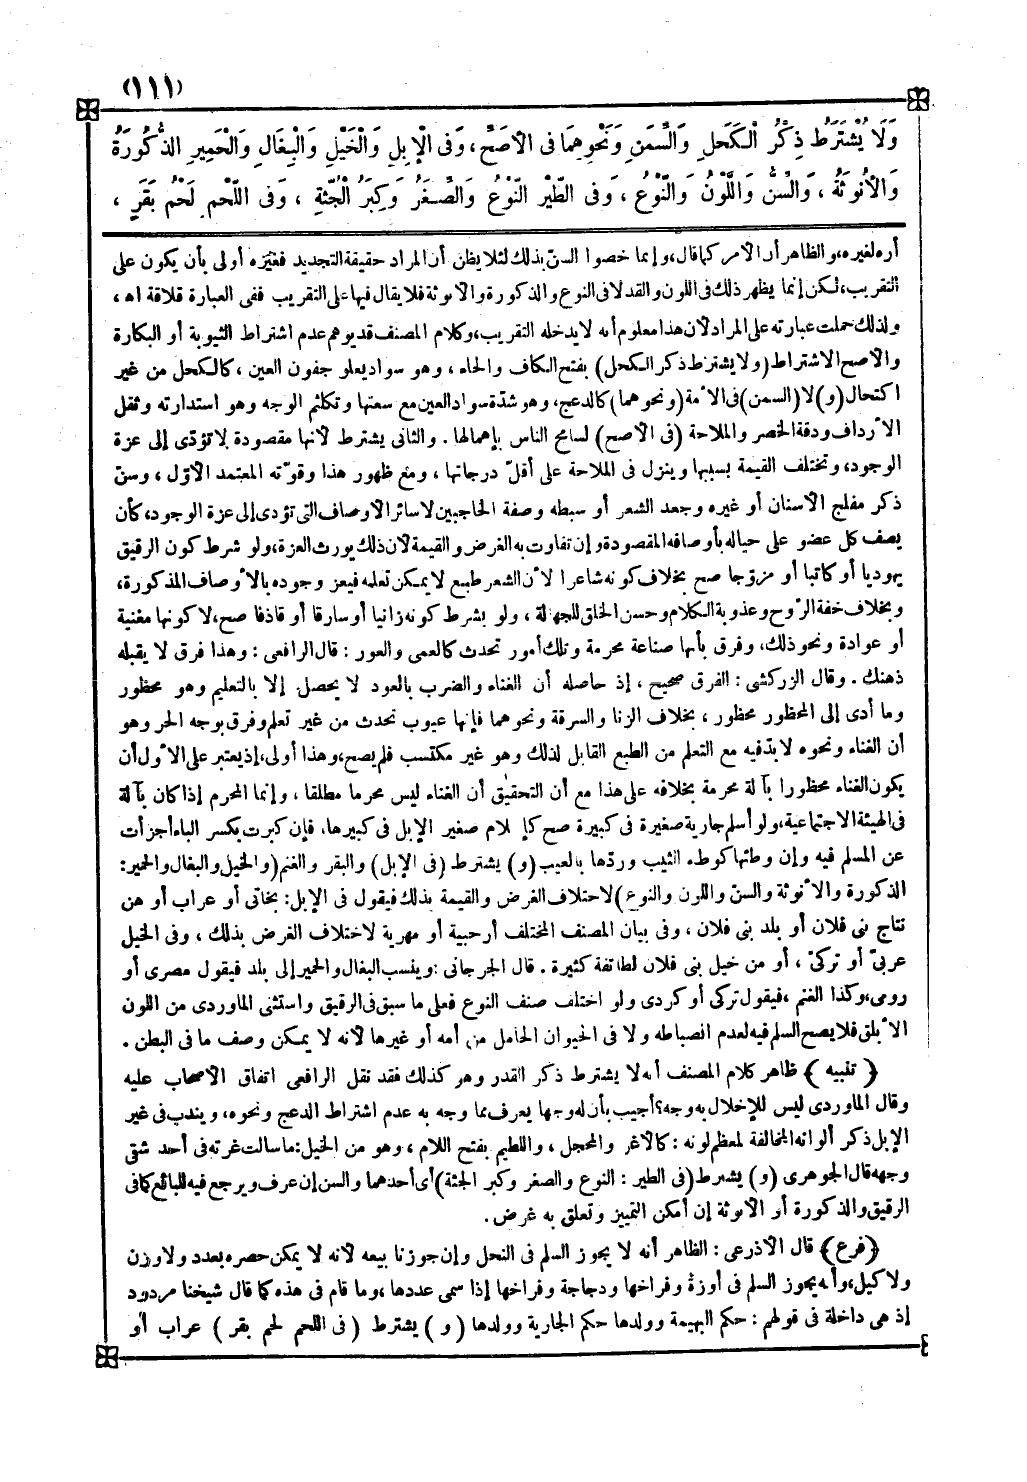 (١١١)
وَلَا يُشْتَرَطُ ذِكْرُ الْكَحَلِ وَالسِّمَنِ وَنَحْوِهِمَا فى الْأَصَحِّ، وَفى الْإِبِلِ وَالْخَيْلِ وَالْبِغَالِ وَالْحَمِيرِ الذُّكُورَةُ
وَالْأُنُوثَةُ ، وَالسِّنُّ وَاللَّوْنُ وَالنَّوْعُ ، وَفى الطَّيْرِ النَّوْعُ وَالصِّغَرُ وَكِبَرُ الْجُثَّةِ ، وَفى اللَّحْمِ لَحْمُ بَقَرٍ ،
أره لغيره، والظاهر أن الأمر كما قال، وإنما خصوا السنّ بذلك لئلا يظن أن المراد حقيقة التحديد فغيره أولى بأن يكون على
التقريب، لكن إنما يظهر ذلك فى اللون والقد لا فى النوع والذكورة والأنوثة فلا يقال فيها على التقريب ففى العبارة قلاقة اه،
ولذلك حملت عبارته على المراد لأن هذا معلوم أنه لا يدخله التقريب، وكلام المصنف قد يوهم عدم اشتراط الثيوبة أو البكارة
والأصح الاشتراط (ولا يشترط ذكر الكحل) بفتح الكاف والحاء ، وهو سواد يعلو جفون العين ، كالكحل من غير
اكتحال (و) لا (السمن) فى الأمة (ونحوهما) كالدعج، وهو شدّة سواد العين مع سعتها وتكلثم الوجه وهو استدارته وثقل
الأرداف ودقة الخصر والملاحة (فى الأصح) لتسامح الناس بإهمالها . والثانى يشترط لأنها مقصودة لا تؤدّى إلى عزة
الوجود، وتختلف القيمة بسببها وينزل فى الملاحة على أقلّ درجاتها ، ومع ظهور هذا وقوّته المعتمد الأوّل ، وسنّ
ذكر مفلج الأسنان أو غيره وجعد الشعر أو سبطه وصفة الحاجبين لا سائر الأوصاف التى تؤدى إلى عزة الوجود، كأن
يصف كل عضو على حياله بأوصافه المقصودة وإن تفاوت به الغرض والقيمة لأن ذلك يورث العزة، ولو شرط كون الرقيق
يهوديا أو كاتبا أو مزوّجا صح بخلاف كونه شاعرا لأن الشعر طبع لا يمكن تعلمه فيعز وجوده بالأوصاف المذكورة،
وبخلاف خفة الرّوح وعذوبة الكلام وحسن الخلق للجهالة ، ولو بشرط كونه زانيا أو سارقا أو قاذفا صح، لا كونها مغنية
أو عوادة ونحو ذلك، وفرق بأنها صناعة محرمة وتلك أمور تحدث كالعمى والعور : قال الرافعى : وهذا فرق لا يقبله
ذهنك . وقال الزركشى : الفرق صحيح ، إذ حاصله أن الغناء والضرب بالعود لا يحصل إلا بالتعليم وهو محظور
وما أدى إلى المحظور محظور ، بخلاف الزنا والسرقة ونحوهما فإنها عيوب تحدث من غير تعلم وفرق بوجه آخر وهو
أن الغناء ونحوه لا بدّ فيه مع التعلم من الطبع القابل لذلك وهو غير مكتسب فلم يصح، وهذا أولى، إذ يعتبر على الأول أن
يكون الغناء محظورا بآلة محرمة بخلافه على هذا مع أن التحقيق أن الغناء ليس محرما مطلقا ، وإنما المحرم إذا كان بآلة
فى الهيئة الاجتماعية، ولو أسلم جارية صغيرة فى كبيرة صح كإسلام صغير الإبل فى كبيرها، فإن كبرت بكسر الباء أجزأت
عن المسلم فيه وإن وطئها كوطء الثيب وردّها بالعيب (و) يشترط (فى الإبل) والبقر والغنم (والخيل والبغال والحمير:
الذكورة والأنوثة والسنّ واللون والنوع) لاختلاف الغرض والقيمة بذلك فيقول فى الإبل: بخاتى أو عراب أو من
نتاج بنى فلان أو بلد بنى فلان ، وفى بيان الصنف المختلف أرحبية أو مهرية لاختلاف الغرض بذلك ، وفى الخيل
عربىّ أو تركىّ ، أو من خيل بنى فلان لطائفة كثيرة . قال الجرجانى : وينسب البغال والحمير إلى بلد فيقول مصرى أو
رومى، وكذا الغنم ، فيقول تركى أو كردى ولو اختلف صنف النوع فعلى ما سبق فى الرقيق واستثنى الماوردى من اللون
الأبلق فلا يصح السلم فيه لعدم انضباطه ولا فى الحيوان الحامل من أمه أو غيرها لأنه لا يمكن وصف ما فى البطن .
﴿ تنبيه ﴾ ظاهر كلام المصنف أنه لا يشترط ذكر القدر وهو كذلك فقد نقل الرافعى اتفاق الأصحاب عليه
وقال الماوردى ليس للإخلال به وجه؟ أجيب بأن له وجها يعرف بما وجه به عدم اشتراط الدعج ونحوه، ويندب فى غير
الإبل ذكر ألوانه المخالفة لمعظم لونه : كالأغر والمحجل ، واللطيم بفتح اللام ، وهو من الخيل: ما سالت غرته فى أحد شقى
وجهه قال الجوهرى (و) يشترط (فى الطير : النوع والصغر وكبر الجثة) أى أحدهما والسن إن عرف ويرجع فيه للبائع كما فى
الرقيق والذكورة أو الأنوثة إن أمكن التمييز وتعلق به غرض .
﴿فرع﴾ قال الأذرعى : الظاهر أنه لا يجوز السلم فى النحل وإن جوزنا بيعه لأنه لا يمكن حصره بعدد ولا وزن
ولا كيل، وأنه يجوز السلم فى أوزة وفراخها ودجاجة وفراخها إذا سمى عددها ، وما قام فى هذه كما قال شيخنا مردود
إذ هى داخلة فى قولهم : حكم البهيمة وولدها حكم الجارية وولدها (و) يشترط (فى اللحم لحم بقر) عراب أو